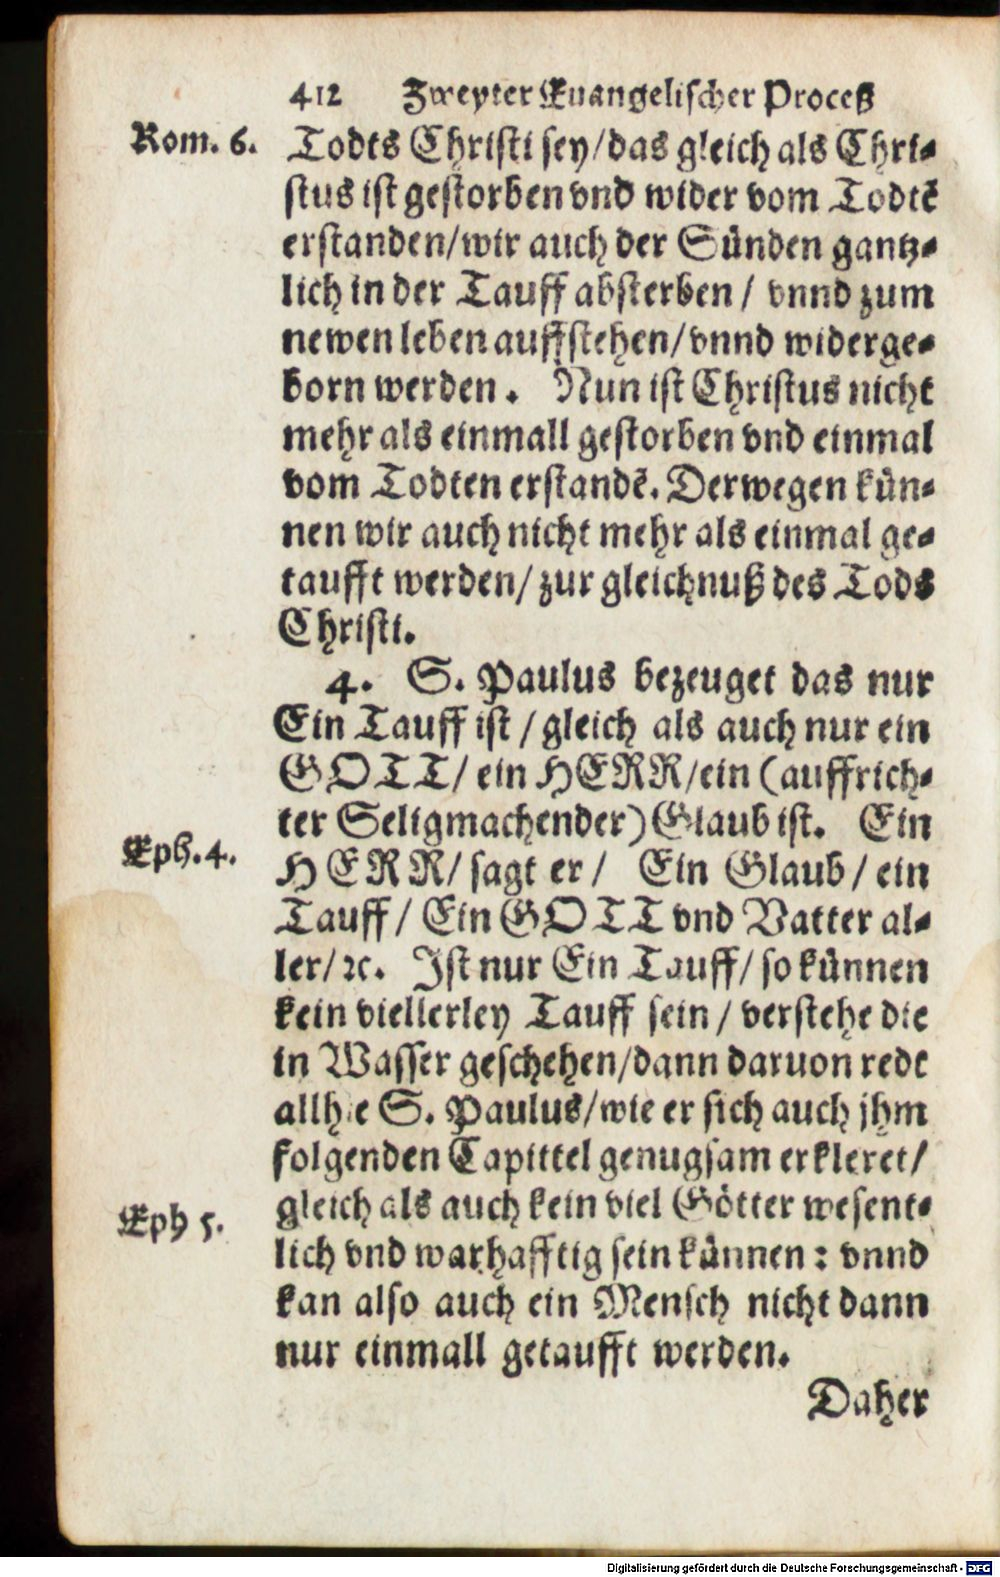 412 Zweyter Euangelischer Proceß
Rom. 6.
Todts Christi sey/das gleich als Chri-
stus ist gestorben vnd wider vom Todtẽ
erstanden/wir auch der Sünden gantz-
lich in der Tauff absterben/ vnnd zum
newen leben auffstehen/vnnd widerge-
born werden. Nun ist Christus nicht
mehr als einmall gestorben vnd einmal
vom Todten erstandẽ. Derwegen kün-
nen wir auch nicht mehr als einmal ge-
taufft werden/ zur gleichnuß des Tods
Christi.
4. S. Paulus bezeuget das nur
Ein Tauff ist / gleich als auch nur ein
GOTT/ ein HERR/ein (auffrich-
ter Seligmachender) Glaub ist. Ein
Eph. 4.
HERR/ sagt er/ Ein Glaub/ ein
Tauff/ Ein GOTT vnd Vatter al-
ler/ ꝛc. Ist nur Ein Tauff/ so künnen
kein viellerley Tauff sein / verstehe die
in Wasser geschehen/dann daruon redt
allhie S. Paulus/wie er sich auch jhm
folgenden Capittel genugsam erkleret/
Eph 5.
gleich als auch kein viel Götter wesent-
lich vnd warhafftig sein künnen: vnnd
kan also auch ein Mensch nicht dann
nur einmall getaufft werden.
Daher
Digitalisierung gefördert durch die Deutsche Forschungsgemeinschaft - DFG